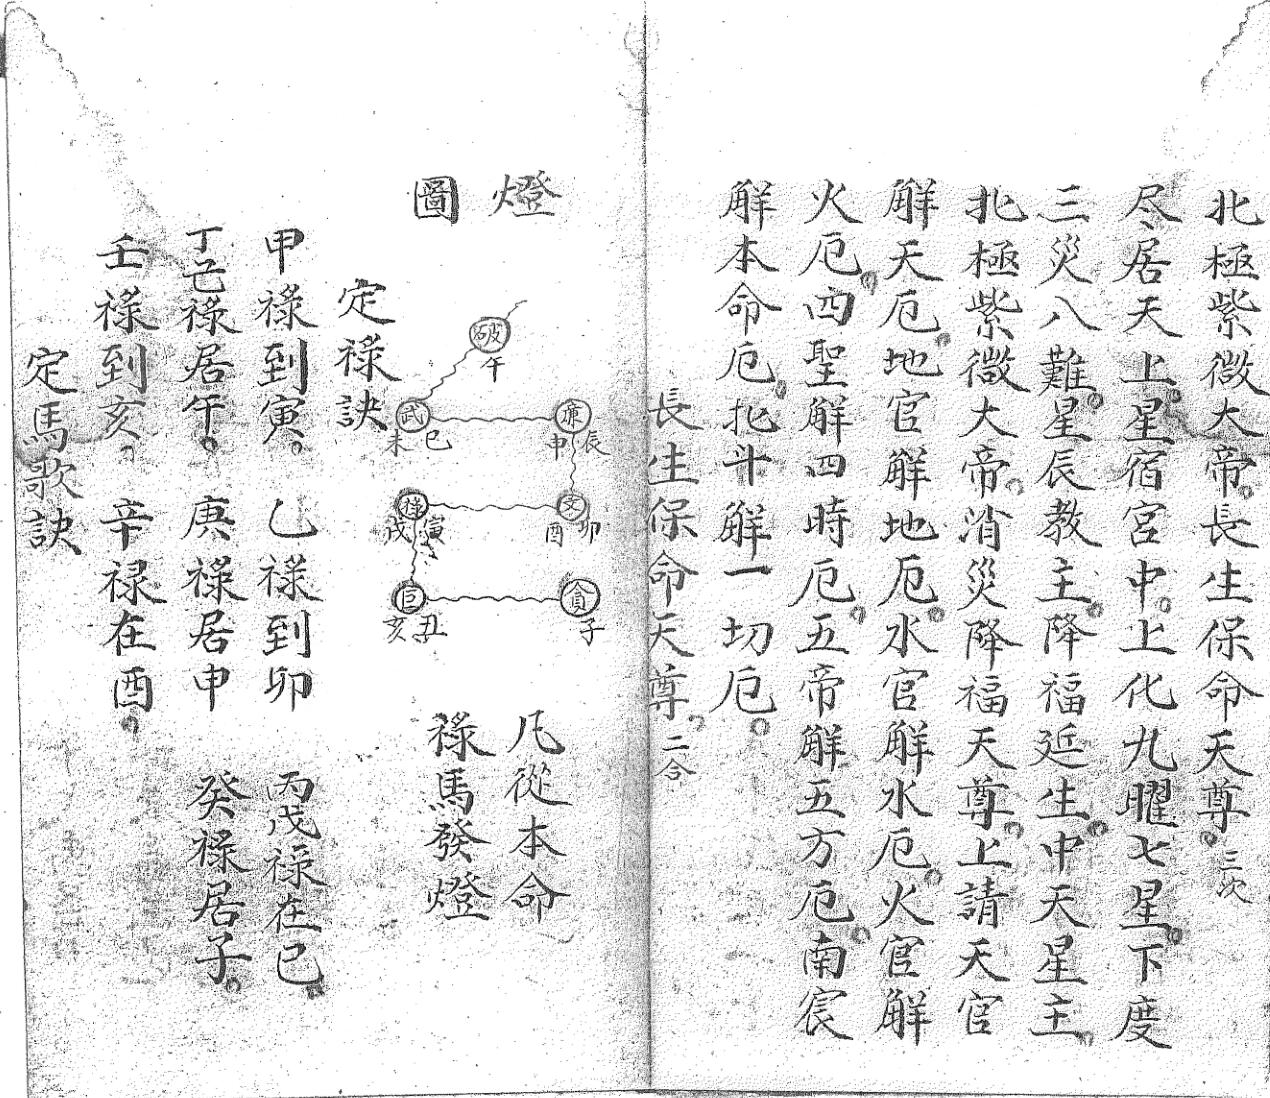 北極紫微大帝。長生保命天尊。三次
尽居天上。星宿宮中。上化九曜七星。下度
三災八難。星辰教主。降福延生。中天星主。
北極紫微大帝。消災降福天尊。上請天官
解天厄。地官解地厄。水官解水厄。火官解
火厄。四聖解四時厄。五帝解五方厄。南宸
解本命厄。北斗解一切厄。
長生保命天尊。二合
燈圖
破 午
武 未 巳
廉 申 辰
祿 戌 寅
文 酉 卯
巨 亥 丑
貪 子
凡從本命
祿馬發燈
定祿訣
甲祿到寅。 乙祿到卯 丙戊祿在巳。
丁己祿居午。 庚祿居申 癸祿居子。
壬祿到亥。 辛禄在酉。
定馬歌訣